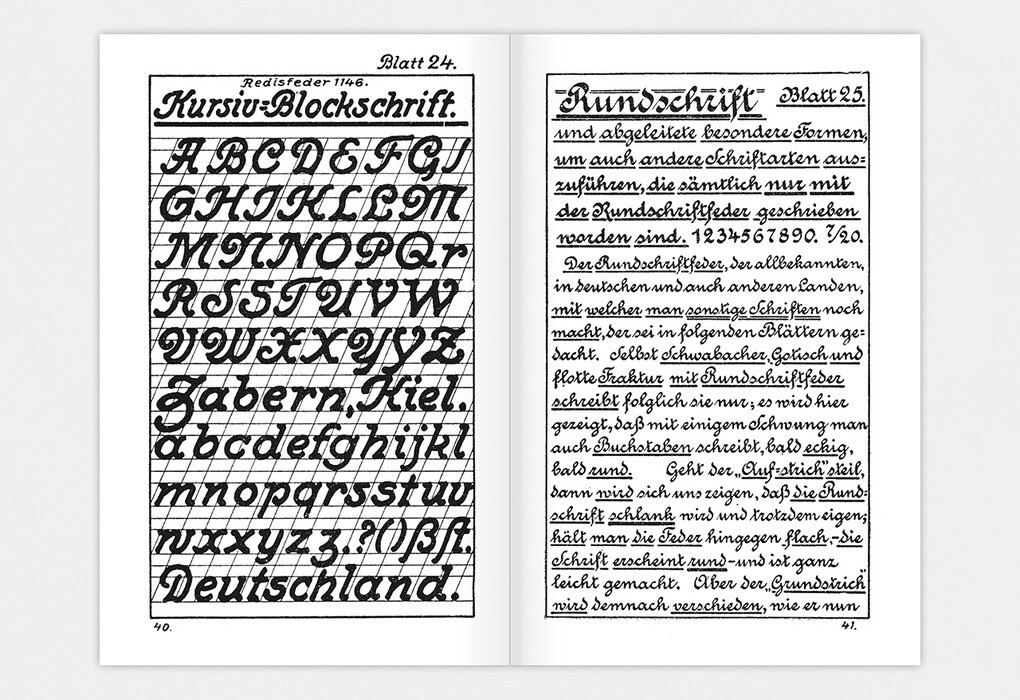 Blatt 24.
Redisfeder 1146.
Kursiv=Blockschrift.
A B C D E F G I
G H I K L L M
M N N O P Q r
R S S T U V W
V W X X Y Y Z
Zabern, Kiel.
abcdefghijkl
mnopqrsstuv
wxxyzz.,?()ßſt.
Deutschland.
40.
Rundschrift Blatt 25.
und abgeleitete besondere Formen,
um auch andere Schriftarten aus=
zuführen, die sämtlich nur mit
der Rundschriftfeder geschrieben
worden sind. 1234567890. 7/20.
Der Rundschriftfeder, der allbekannten,
in deutschen und auch anderen Landen,
mit welcher man sonstige Schriften noch
macht, der sei in folgenden Blättern ge=
dacht. Selbst Schwabacher, Gotisch und
flotte Fraktur mit Rundschriftfeder
schreibt folglich sie nur; es wird hier
gezeigt, daß mit einigem Schwung man
auch Buchstaben schreibt, bald eckig,
bald rund. Geht der „Auf=strich" steil,
dann wird sich uns zeigen, daß die Rund=
schrift schlank wird und trotzdem eigen;
hält man die Feder hingegen flach,-die
Schrift erscheint rund-und ist ganz
leicht gemacht. Aber der „Grundstrich"
wird demnach verschieden, wie er nun
41.